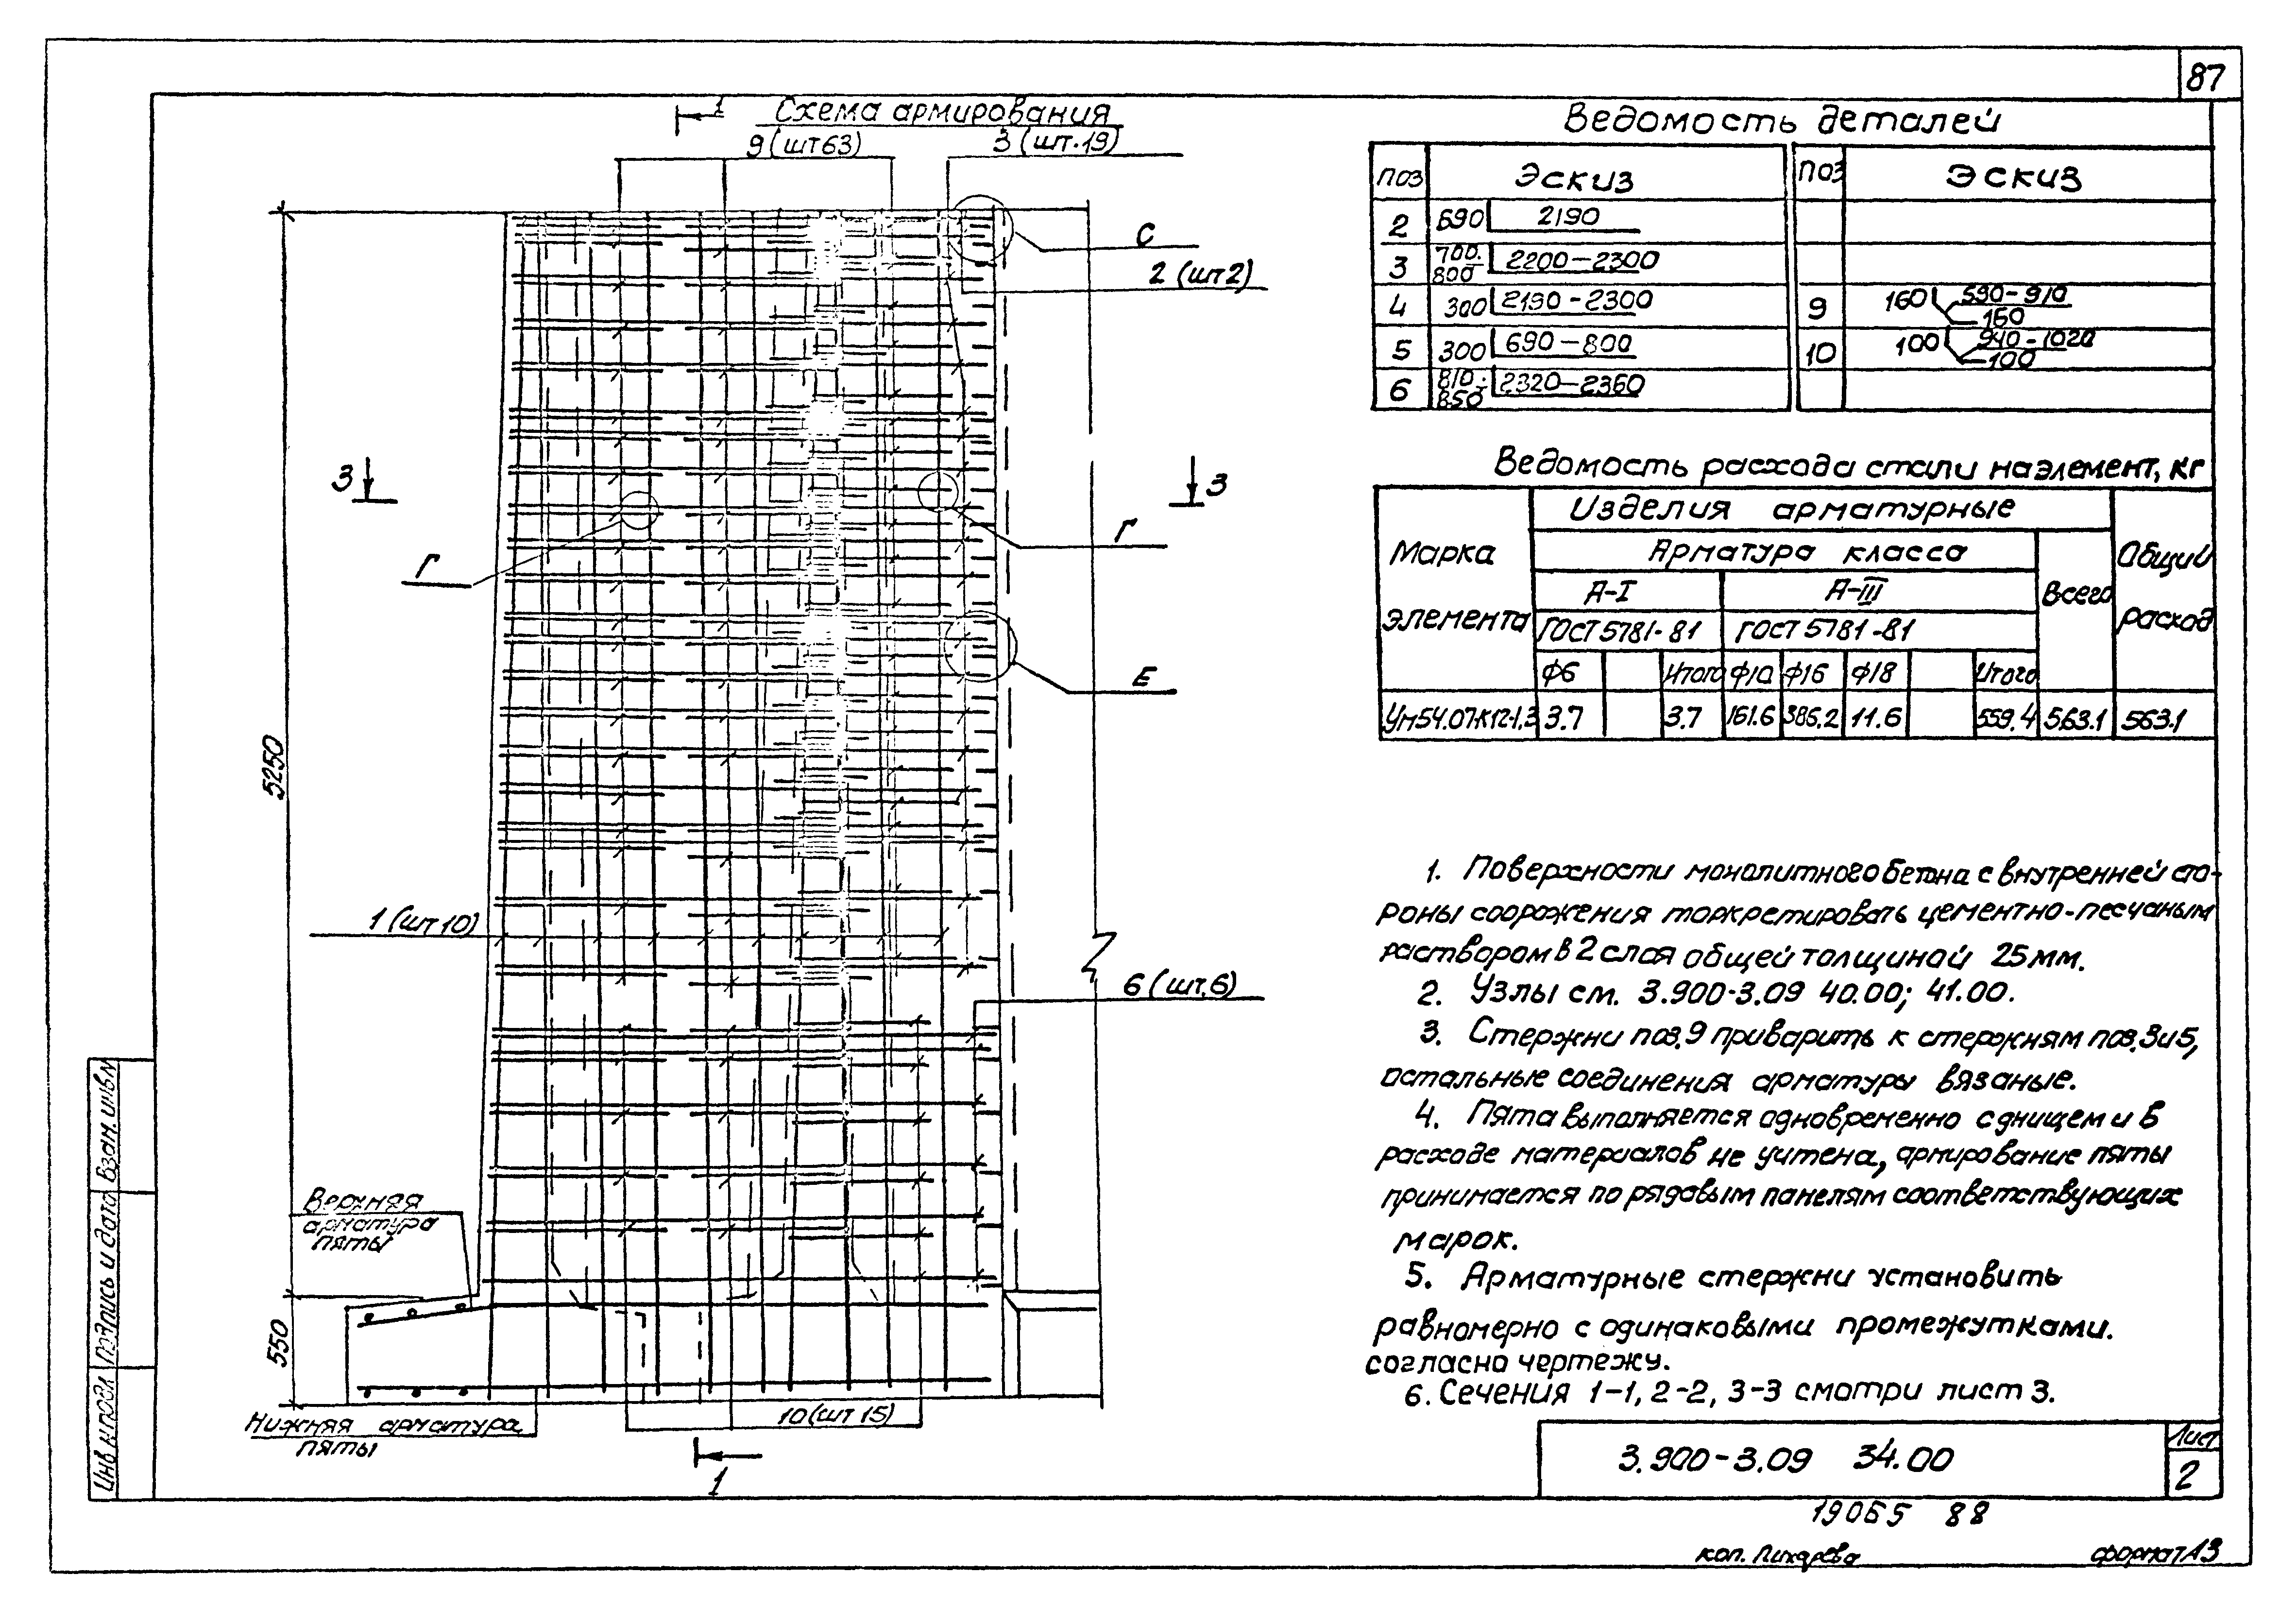 87
Схема армирования
1
9 (шт 63)
3 (шт. 19)
С
2 (шт 2)
3
3
Г
Г
Е
5250
1 (шт 10)
6 (шт. 6)
Верхняя
арматура
пяты
550
10 (шт 15)
Нижняя арматура
пяты
1
Ведомость деталей
Поз Эскиз Поз Эскиз
2 690 2190
3 700÷800 2200–2300
4 300 2190-2300 9 160 590-910 160
5 300 690–800 10 100 940-1020 100
6 810÷850 2320–2360
Ведомость расхода стали на элемент, кг
Марка элемента
Изделия арматурные
Общий расход
Арматура класса
Всего
А-I А-III
ГОСТ 5781-81 ГОСТ 5781-81
Ф6 Итого Ф10 Ф16 Ф18 Итого
Ум54.07-К12-1,3 3.7 3.7 161.6 386.2 11.6 559.4 563.1 563.1
1. Поверхности монолитного бетона с внутренней сто-
роны сооружения торкретировать цементно-песчаным
раствором в 2 слоя общей толщиной 25мм.
2. Узлы см. 3.900-3.09 40.00; 41.00.
3. Стержни поз. 9 приварить к стержням поз. 3 и 5,
остальные соединения арматуры вязаные.
4. Пята выполняется одновременно с днищем и в
расходе материалов не учтена, армирование пяты
принимается по рядовым панелям соответствующих
марок.
5. Арматурные стержни установить
равномерно с одинаковыми промежутками.
согласно чертежу.
6. Сечения 1-1, 2-2, 3-3 смотри лист 3.
3.900-3.09 34.00
Лист
2
19065 88
коп. Лихарева
формат А3
Инв N подл. Подпись и дата Взам. инв N